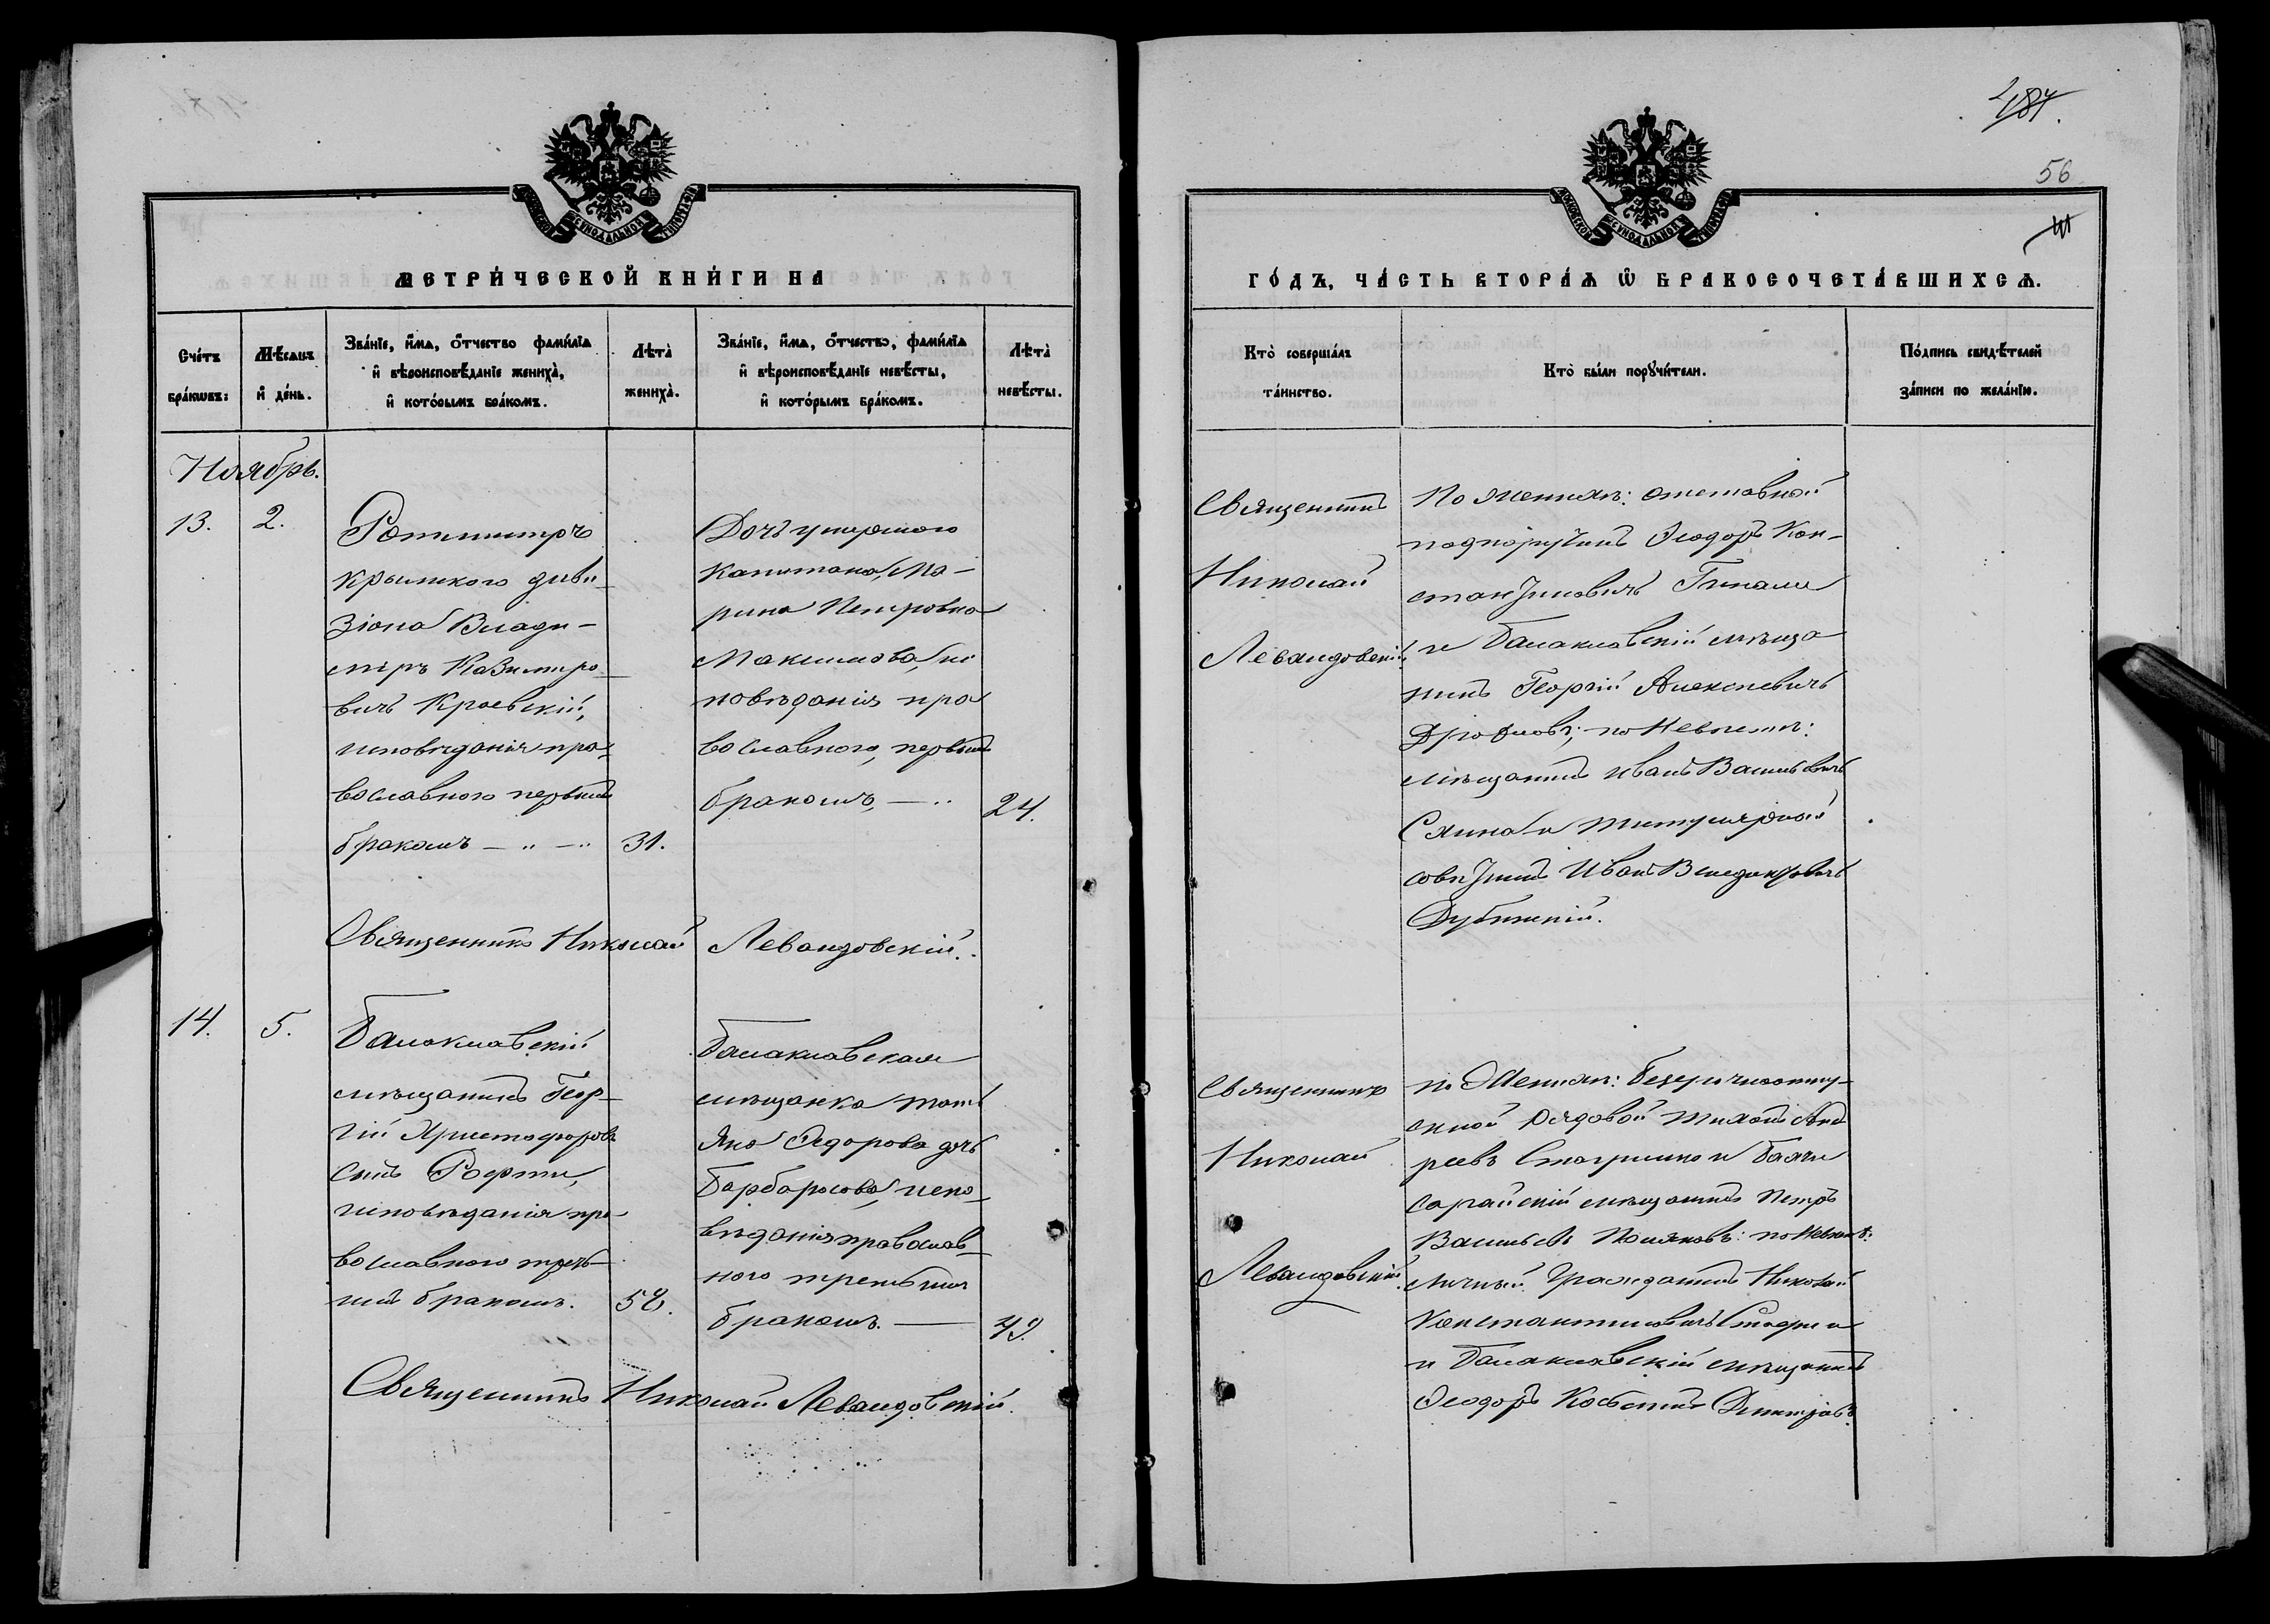 МЕТРИ́ЧЕСКОЙ КНИ́ГИ НА
Сче́тъ бра́кѡвъ:
Мѣ́сѧцъ и҆ де́нь.
Зва́нїе, и҆́мѧ, о҆́тчество фами́лїа и҆ вѣроисповѣ́данїе жениха̀, и҆ кото́рымъ бра́комъ.
Лѣта̀ жениха̀.
Зва́нїе, и҆́мѧ, о҆́тчество, фами́лїа и҆ вѣроисповѣ́данїе невѣ́сты, и҆ кото́рымъ бра́комъ.
Лѣта̀ невѣ́сты.
Ноябрь.
13.
2.
Ротмистръ
крымского диви-
зіона Влади-
міръ Казиміро-
вичъ Краевскій,
исповѣданія пра-
вославного первымъ
бракомъ
31.
Дочь умершого
капитана, Ма-
рина Петровна
Максимова, ис
повѣданія пра
вославного, первымъ
бракомъ,
24.
Священникъ Николай Левандовскій.
14.
5.
Балаклавскій
мѣщанинъ Геор-
гій Христофоровъ
сынъ Рафти,
исповѣданія пра
вославного треть-
имъ бракомъ.
52.
Балаклавская
мѣщанка
Ѳедорова дочь
Барбарисова, испо-
вѣданія православ-
ного третьимъ
бракомъ.
49.
Священникъ Николай Левандовскій.
56
ГО́ДЪ, ЧА́СТЬ ВТОРА́Ѧ Ѽ БРАКОСОЧЕТА́ВШИХСѦ.
Кто̀ соверша́лъ та́инство.
Кто̀ бы́ли порꙋчи́тели.
По́дпись свидѣ́телей за́писи по жела́нїю.
Священникъ
Николай
Левандовскій.
По женихѣ: отставной
подпоручикъ Ѳеодоръ Кон-
стантиновичъ Гинали
и Балаклавскій мѣща
нинъ Георгій Алексѣевичъ
по невѣстѣ:
мѣщанинъ Иванъ Васильевичъ
и титулярный
совѣтникъ Иванъ
Дубинскій.
Священникъ
Николай
Левандовскій.
по женихѣ: безсрочноотпу-
скной рядовой Анд
реевъ и Бахчи
сарайскій мѣщанинъ Петръ
Васильевъ Поляковъ: по невѣстѣ:
личный гражданинъ Николай
Константиновичъ
и Балаклавскій мѣщанинъ
Ѳеодоръ Дмитріевъ.